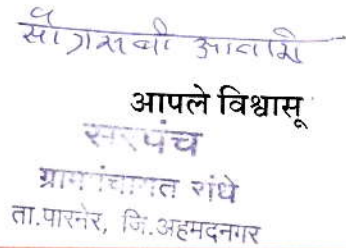 आपले विश्वासू
सरपंच
ग्रामपंचायत रांधे
ता.पारनेर, जि.अहमदनगर